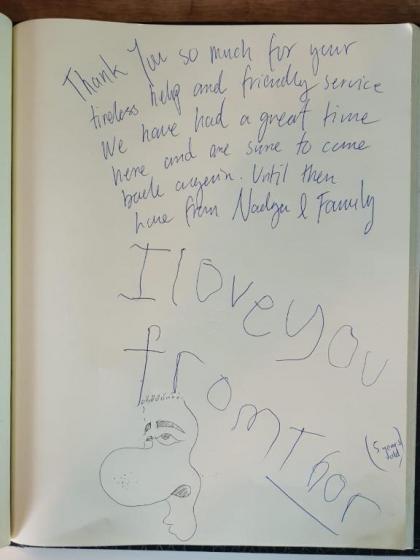 Thank You so much for your
tireless help and friendly service
We have had a great time
here and are sure to come
back again. Until then
love from Nadya & Family
I love you
from Thor
(5 years old)